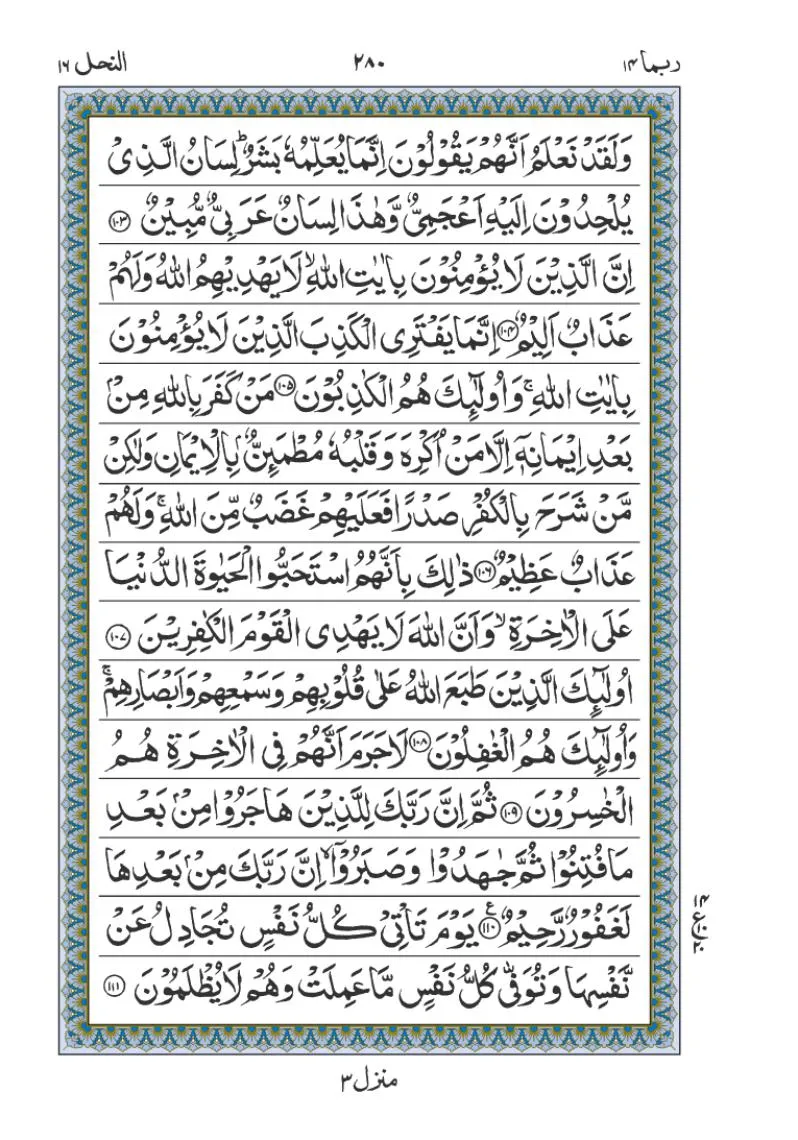 ربما ١٤ ٢٨٠ النحل ١٦
وَلَقَدْ نَعْلَمُ اَنَّهُمْ يَقُوْلُوْنَ اِنَّمَا يُعَلِّمُهٗ بَشَرٌ ؕ لِسَانُ الَّذِىْ
يُلْحِدُوْنَ اِلَيْهِ اَعْجَمِىٌّ وَّهٰذَا لِسَانٌ عَرَبِىٌّ مُّبِيْنٌ ۝١٠٣
اِنَّ الَّذِيْنَ لَا يُؤْمِنُوْنَ بِاٰيٰتِ اللّٰهِ ۙ لَا يَهْدِيْهِمُ اللّٰهُ وَلَهُمْ
عَذَابٌ اَلِيْمٌ ۝١٠٤ اِنَّمَا يَفْتَرِى الْكَذِبَ الَّذِيْنَ لَا يُؤْمِنُوْنَ
بِاٰيٰتِ اللّٰهِ ۚ وَاُولٰٓئِكَ هُمُ الْكٰذِبُوْنَ ۝١٠٥ مَنْ كَفَرَ بِاللّٰهِ مِنْۢ
بَعْدِ اِيْمَانِهٖۤ اِلَّا مَنْ اُكْرِهَ وَقَلْبُهٗ مُطْمَئِنٌّۢ بِالْاِيْمَانِ وَلٰكِنْ
مَّنْ شَرَحَ بِالْكُفْرِ صَدْرًا فَعَلَيْهِمْ غَضَبٌ مِّنَ اللّٰهِ ۚ وَلَهُمْ
عَذَابٌ عَظِيْمٌ ۝١٠٦ ذٰلِكَ بِاَنَّهُمُ اسْتَحَبُّوا الْحَيٰوةَ الدُّنْيَا
عَلَى الْاٰخِرَةِ ۙ وَاَنَّ اللّٰهَ لَا يَهْدِى الْقَوْمَ الْكٰفِرِيْنَ ۝١٠٧
اُولٰٓئِكَ الَّذِيْنَ طَبَعَ اللّٰهُ عَلٰى قُلُوْبِهِمْ وَسَمْعِهِمْ وَاَبْصَارِهِمْ ۚ
وَاُولٰٓئِكَ هُمُ الْغٰفِلُوْنَ ۝١٠٨ لَا جَرَمَ اَنَّهُمْ فِى الْاٰخِرَةِ هُمُ
الْخٰسِرُوْنَ ۝١٠٩ ثُمَّ اِنَّ رَبَّكَ لِلَّذِيْنَ هَاجَرُوْا مِنْۢ بَعْدِ
مَا فُتِنُوْا ثُمَّ جٰهَدُوْا وَصَبَرُوْۤا ۙ اِنَّ رَبَّكَ مِنْۢ بَعْدِهَا
لَغَفُوْرٌ رَّحِيْمٌ ۝١١٠ ع يَوْمَ تَاْتِىْ كُلُّ نَفْسٍ تُجَادِلُ عَنْ
نَّفْسِهَا وَتُوَفّٰى كُلُّ نَفْسٍ مَّا عَمِلَتْ وَهُمْ لَا يُظْلَمُوْنَ ۝١١١
منزل ٣